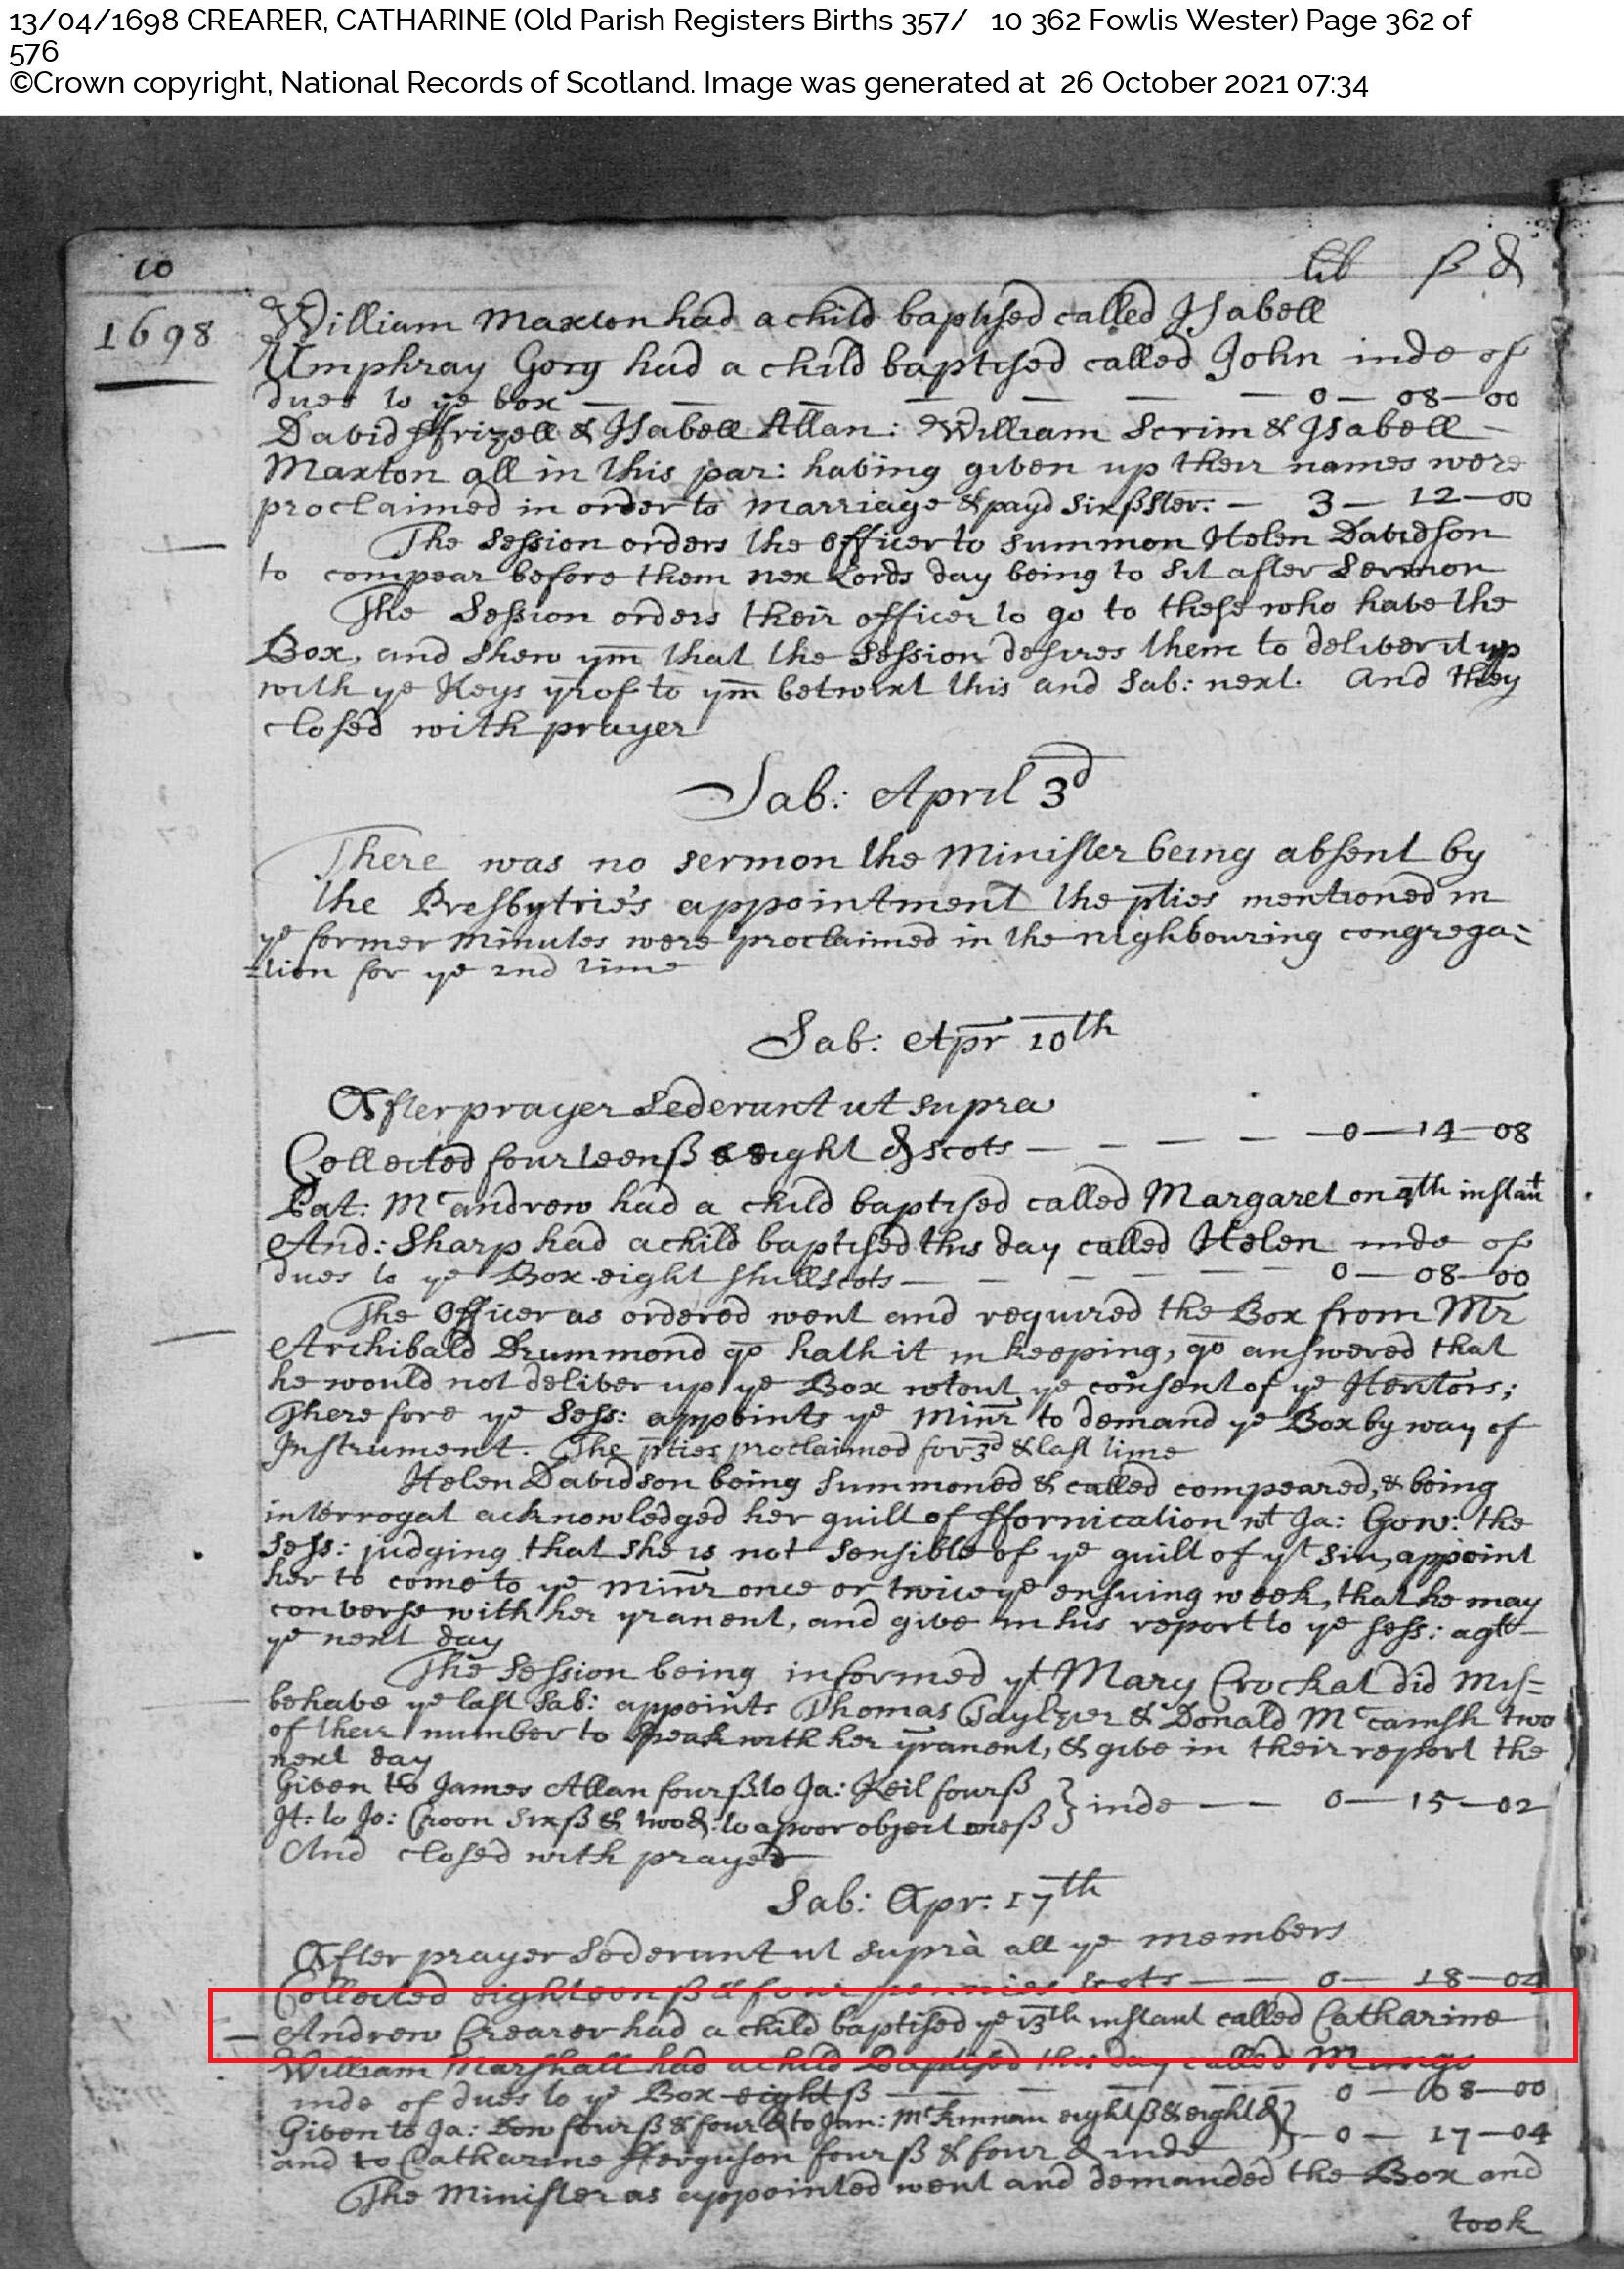 13/04/1698 CREARER, CATHARINE (Old Parish Registers Births 357/ 10 362 Fowlis Wester) Page 362 of
576
©Crown copyright, National Records of Scotland. Image was generated at 26 October 2021 07:34
10
lib ß d
1698
William Maxton had a child baptised called Isabell
Umphray Gory had a child baptised called John inde of
dues to ye box — — — — — — — 0 — 08 — 00
David ffrizell & Isabell Allan: William Scrim & Isabell
Maxton all in this par: having given up their names were
proclaimed in order to marriage & payd six ß ster: — 3 — 12 — 00
The Session orders the Officer to summon Helen Davidson
to compear before them nex Lords day being to sit after Sermon
The Session orders their officer to go to these who have the
Box, and shew ym that the Session desires them to deliver it up
with ye Keys yrof to ym betwixt this and Sab: next. And they
closed with prayer
Sab: April 3d
There was no sermon the Minister being absent by
the Presbytrie's appointment the pties mentioned in
ye former Minutes were proclaimed in the nighbouring congrega=
=tion for ye 2nd time
Sab: Apr 10th
After prayer Sederunt ut supra
Collected fourteen ß & eight d scots — — — — 0 — 14 — 08
Pat: Mcandrew had a child baptised called Margaret on 4th instant
And: Sharp had a child baptised this day called Helen inde of
dues to ye Box eight shill scots — — — — — — 0 — 08 — 00
The Officer as ordered went and required the Box from Mr
Archibald Drummond qo hath it in keeping, qo answered that
he would not deliver up ye Box wtout ye consent of ye Heritors;
Therefore ye Sess: appoints ye Minr to demand ye Box by way of
Instrument. The pties proclaimed for 3d & last time
Helen Davidson being summoned & called compeared, & being
interrogat acknowledged her guilt of ffornication wt Ja: Gow: the
Sess: judging that she is not sensible of ye guilt of yt sin, appoint
her to come to ye Minr once or twice ye ensuing week, that he may
converse with her yranent, and give in his report to ye sess: agt
ye next day
The Session being informed yt Mary Crockat did mis=
behave ye last Sab: appoints Thomas Taylzier & Donald Mccamsh two
of their number to speak with her yranent, & give in their report the
next day
Given to James Allan four ß: to Ja: Keil four ß
It: to Jo: Croon six ß & two d: to a poor object one ß } inde — — 0 — 15 — 02
And closed with prayer
Sab: Apr: 17th
After prayer Sederunt ut suprà all ye members
Collected eighteen ß & four pennies scots — — 0 — 18 — 04
Andrew Crearer had a child baptised ye 13th instant called Catharine
William Marshall had a child Baptised this day called Mungo
inde of dues to ye Box eight ß — — — — — 0 — 08 — 00
Given to Ja: Dow four ß & four d to Jan: McKinnan eight ß & eight d
and to Catharine fferguson four ß & four d inde } — 0 — 17 — 04
The Minister as appointed went and demanded the Box and
took